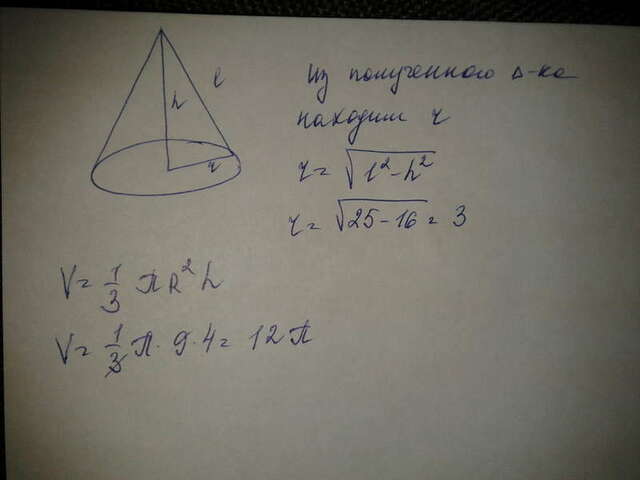 l
h
r
Из полученного Δ-ка
находим r
r = √l² - h²
r = √25 - 16 = 3
V = 1/3 πR²h
V = 1/3 π · 9 · 4 = 12π